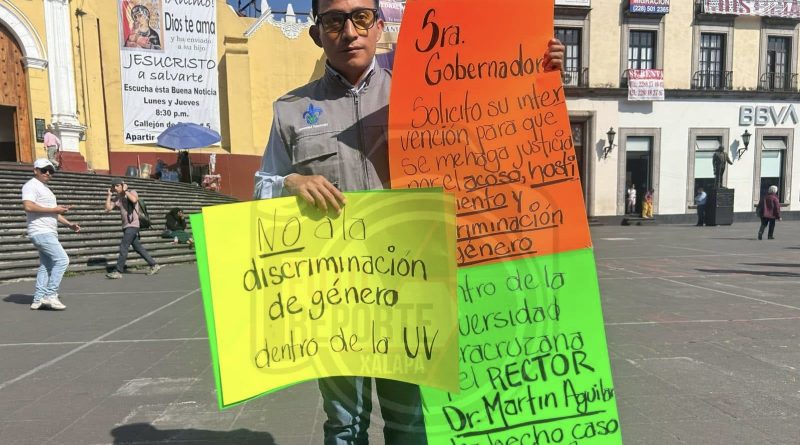 Dios te ama
y ha enviado a su hijo
JESUCRISTO
a salvarte
Escucha ésta Buena Noticia
Lunes y Jueves
8:30 p.m.
Callejón de
Apartir
Sra.
Gobernador
Solicito su inter
vención para que
se me haga justicia
por el acoso, hosti
amiento y
discriminación
género
dentro de la
versidad
acruzana
el RECTOR
Dr. Martín Aguilar
No hecho caso
NO a la
discriminación
de género
dentro de la UV
REPORTE
XALAPA
SE RENTA
BBVA